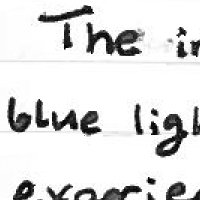 The i
blue lig
experie